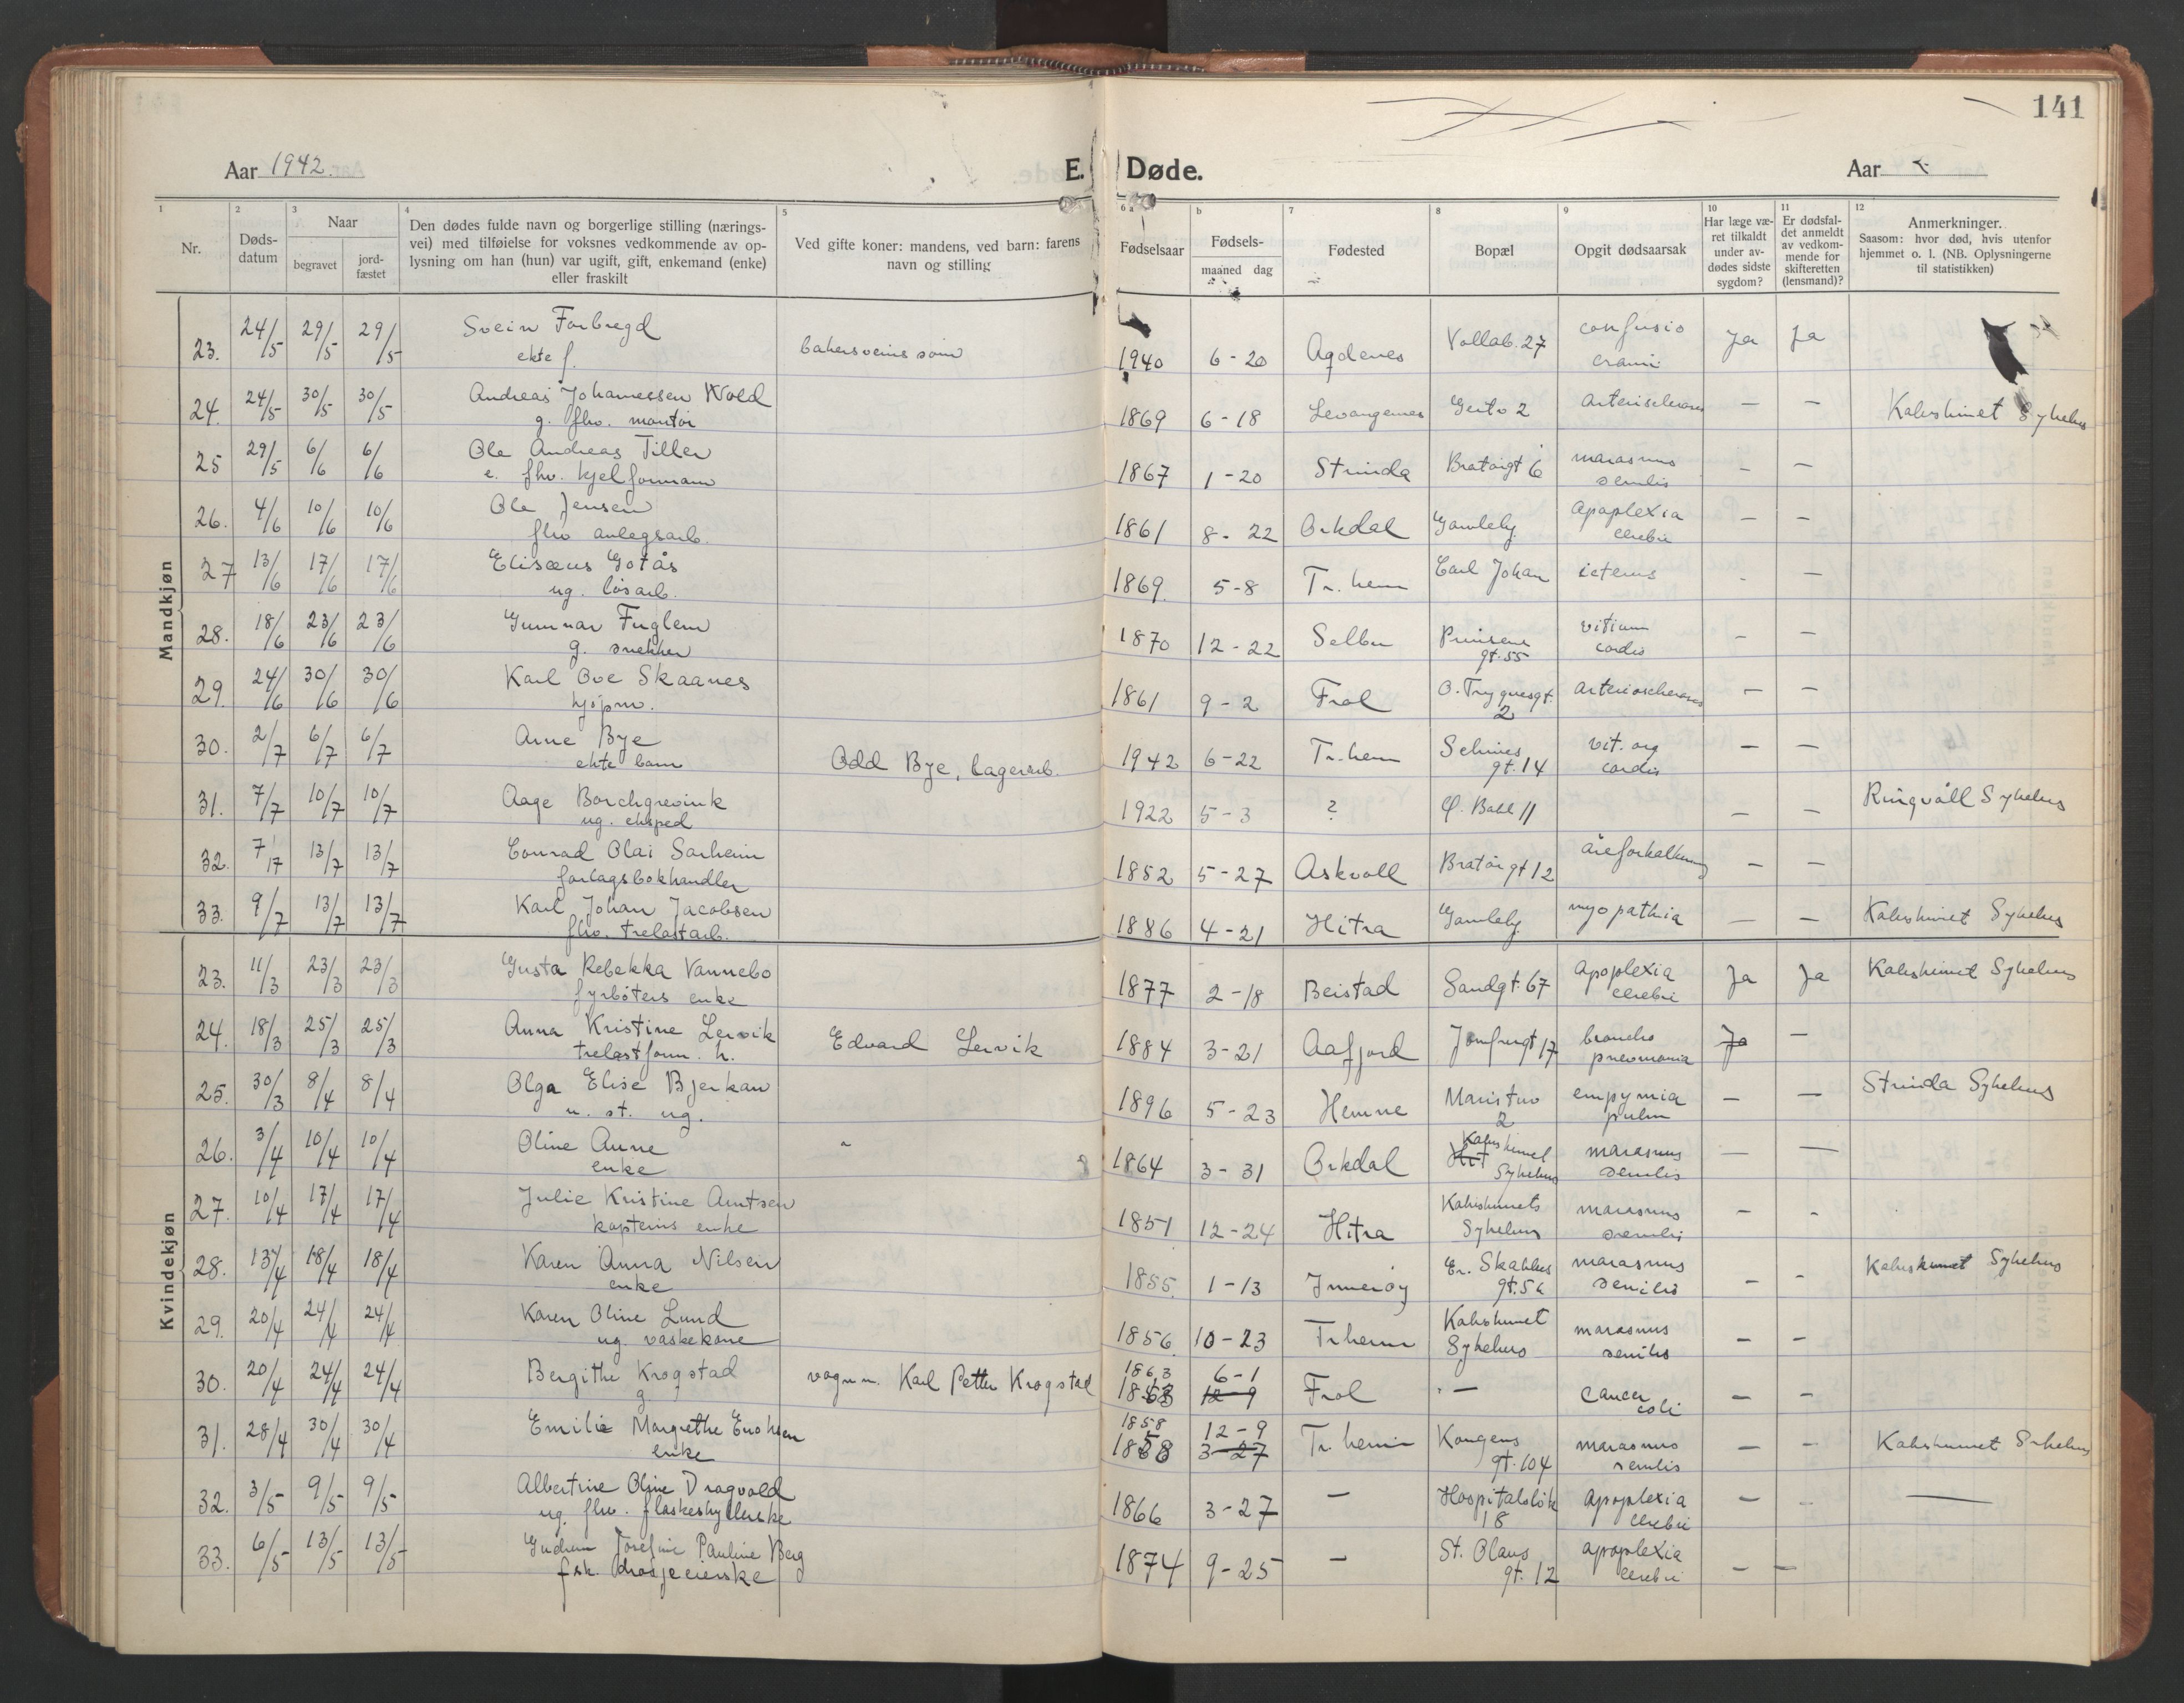 141
Aar 1942.
E. Døde.
Aar
1 2 3 4 5 6 a b 7 8 9 10 11 12
Nr.
Døds-
datum
Naar
begravet
jord-
fæstet
Den dødes fulde navn og borgerlige stilling (nærings-
vei) med tilføielse for voksnes vedkommende av op-
lysning om han (hun) var ugift, gift, enkemand (enke)
eller fraskilt
Ved gifte koner: mandens, ved barn: farens
navn og stilling
Fødselsaar
Fødsels-
maaned dag
Fødested
Bopæl
Opgit dødsaarsak
Har læge væ-
ret tilkaldt
under av-
dødes sidste
sygdom?
Er dødsfal-
det anmeldt
av vedkom-
mende for
skifteretten
(lensmand)?
Anmerkninger.
Saasom: hvor død, hvis utenfor
hjemmet o. l. (NB. Oplysningerne
til statistikken)
Mandkjøn
23. 24/5 29/5 29/5 Svein Forbregd bakersveins sønn 1940 6-20 Agdenes Vollab. 27 confusio Ja Ja
ekte f. cranii
24. 24/5 30/5 30/5 Andreas Johannessen Wold 1869 6-18 Levanger 2 arteriosclerosis — — Kalvskinnet Sykehus
g. fhv. montør
25 29/5 6/6 6/6 Ole Andreas Tiller 1867 1-20 Strinda Bratørgt 6 marasmus — —
e. fhv. kjelformann senilis
26. 4/6 10/6 10/6 Ole Jensen 1861 8-22 Orkdal Gamleby apoplexia — —
fhv anlegsarb. cerebri
27 13/6 17/6 17/6 Elisæus Gotås 1869. 5-8 Tr.heim Carl Johan icterus - —
ug. løsarb.
28. 18/6 23/6 23/6 Gunnar Fuglem 1870 12-22 Selbu Prinsens vitium — —
g. snekker gt. 55 cordis
29. 24/6 30/6 30/6 Karl Ove Skaanes 1861 9-2 Frol O. Trygvesgt. arteriosclerosis — —
kjøpm. 2
30. 2/7 6/7 6/7 Arne Bye Odd Bye, lagerarb. 1942 6-22 Tr.heim Schives vit. org — —
ekte barn gt. 14 cordis
31. 7/7 10/7 10/7 Aage Borchgrevink 1922 5-3 ? 11 — — Ringvåll Sykehus
ug. eksped
32. 7/7 13/7 13/7 Conrad Olai Sørheim 1852 5-27 Askvoll Bratørgt 12 åreforkalkning — —
forlagsbokhandler
33. 9/7 13/7 13/7 Karl Johan Jacobsen 1886 4-21 Hitra Gamleby myopathia — — Kalvskinnet Sykehus
fhv. trelastarb.
Kvindekjøn
23. 11/3 23/3 23/3 Gusta Rebekka Vannebo 1877 2-18 Beistad Sandgt. 67 apoplexia Ja Ja Kalvskinnet Sykehus
fyrbøters enke cerebri
24. 18/3 25/3 25/3 Anna Kristine Lervik Edvard Lervik 1884 3-21 Aafjord Jomfrugt 17 broncho Ja —
trelastform. h. pneumonia
25. 30/3 8/4 8/4 Olga Elise Bjerkan 1896 5-23 Hemne Maristuo empymia — — Strinda Sykehus
u. st. ug. 2 pulm
26. 3/4 10/4 10/4 Oline Aune 1864 3-31 Orkdal Kalvskinnet marasmus — —
enke Sykehus senilis
27. 10/4 17/4 17/4 Julie Kristine Arntsen 1851 12-24 Hitra Kalvskinnets marasmus — -
kapteins enke Sykehus senilis
28. 13/4 18/4 18/4 Karen Anna Nilsen 1855. 1-13 Inderøy Er. Skakkes marasmus — - Kalvskinnet Sykehus
enke gt. 5a senilis
29. 20/4 24/4 24/4 Karen Oline Lund 1856. 10-23 Tr.heim Kalvskinnet marasmus — —
ug. vaskekone Sykehus senilis
30. 20/4 24/4 24/4 Bergithe Krogstad vognm. Karl Petter Krogstad 1863 6-1 Frol — cancer — —
g 1863 12-9 coli
31. 28/4 30/4 30/4 Emilie Margrethe Enoksen 1858 12-9 Tr.heim Kongens marasmus — - Kalvskinnet Sykehus
enke 1858 3-27 gt. 104 senilis
32. 3/5 9/5 9/5 Albertine Oline Dragvold 1866 3-27 — Hospitalsløk apoplexia — - —
ug. fhv. flaskeskyllerske 18 cerebri
33. 6/5 13/5 13/5 Gudrun Josefine Pauline Berg 1874 9-25 — St. Olavs apoplexia — —
fsk. drosjeeierske gt. 12 cerebri